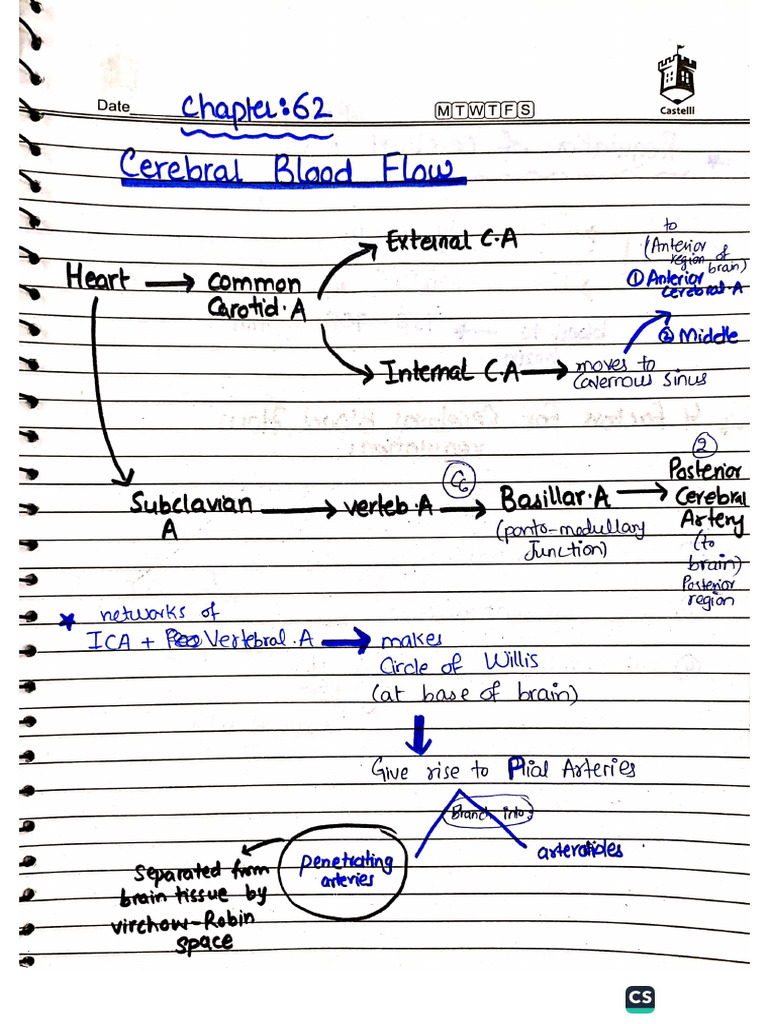 Date
Chapter: 62
M T W T F S
Castelli
Cerebral Blood Flow
External C.A
to
(Anterior
region of
brain)
① Anterior
cerebral.A
② Middle
Heart → common
Carotid.A
Internal C.A → moves to
Cavernous sinus
Subclavian
A
→ verteb.A →
Basillar.A →
(ponto-medullary
Junction)
②
Posterior
Cerebral
Artery
(to
brain)
Posterior
region
★ networks of
ICA + Vertebral.A → makes
Circle of Willis
(at base of brain)
Give rise to Plial Arteries
Branch into
penetrating
arteries
arteroticles
Separated from
brain tissue by
virchow-Robin
space
CS